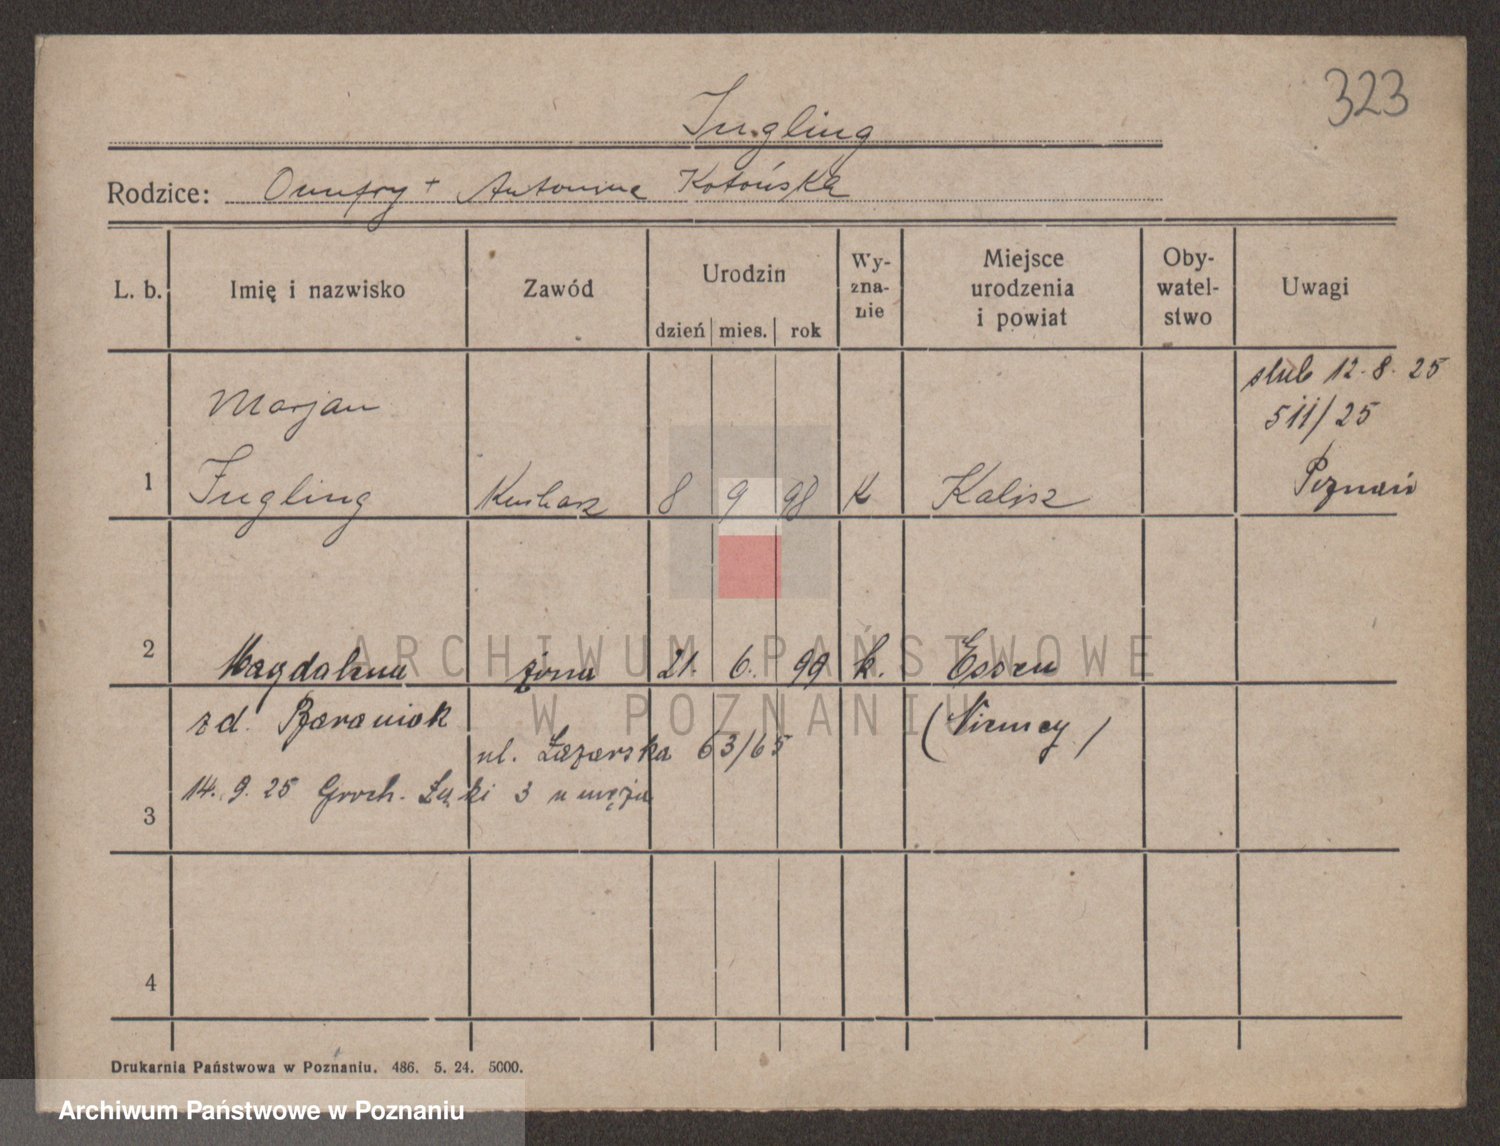 323
Jngling
Rodzice: Onufry + Antonina Kotońska
L. b. Imię i nazwisko Zawód Urodzin dzień mies. rok Wy-zna-nie Miejsce urodzenia i powiat Oby-watel-stwo Uwagi
ślub 12. 8. 25
Marjan
511/25
1 Jngling Kucharz 8 9 98 K Kalisz Poznań
2 Magdalena żona 21. 6. 99 k. Essen
zd. Baraniak (Niemcy)
ul. Łazarska 63/65
14. 9. 25 Groch. Łąki 3 u męża
3
4
Drukarnia Państwowa w Poznaniu. 486. 5. 24. 5000.
ARCHIWUM PAŃSTWOWE
W POZNANIU
Archiwum Państwowe w Poznaniu